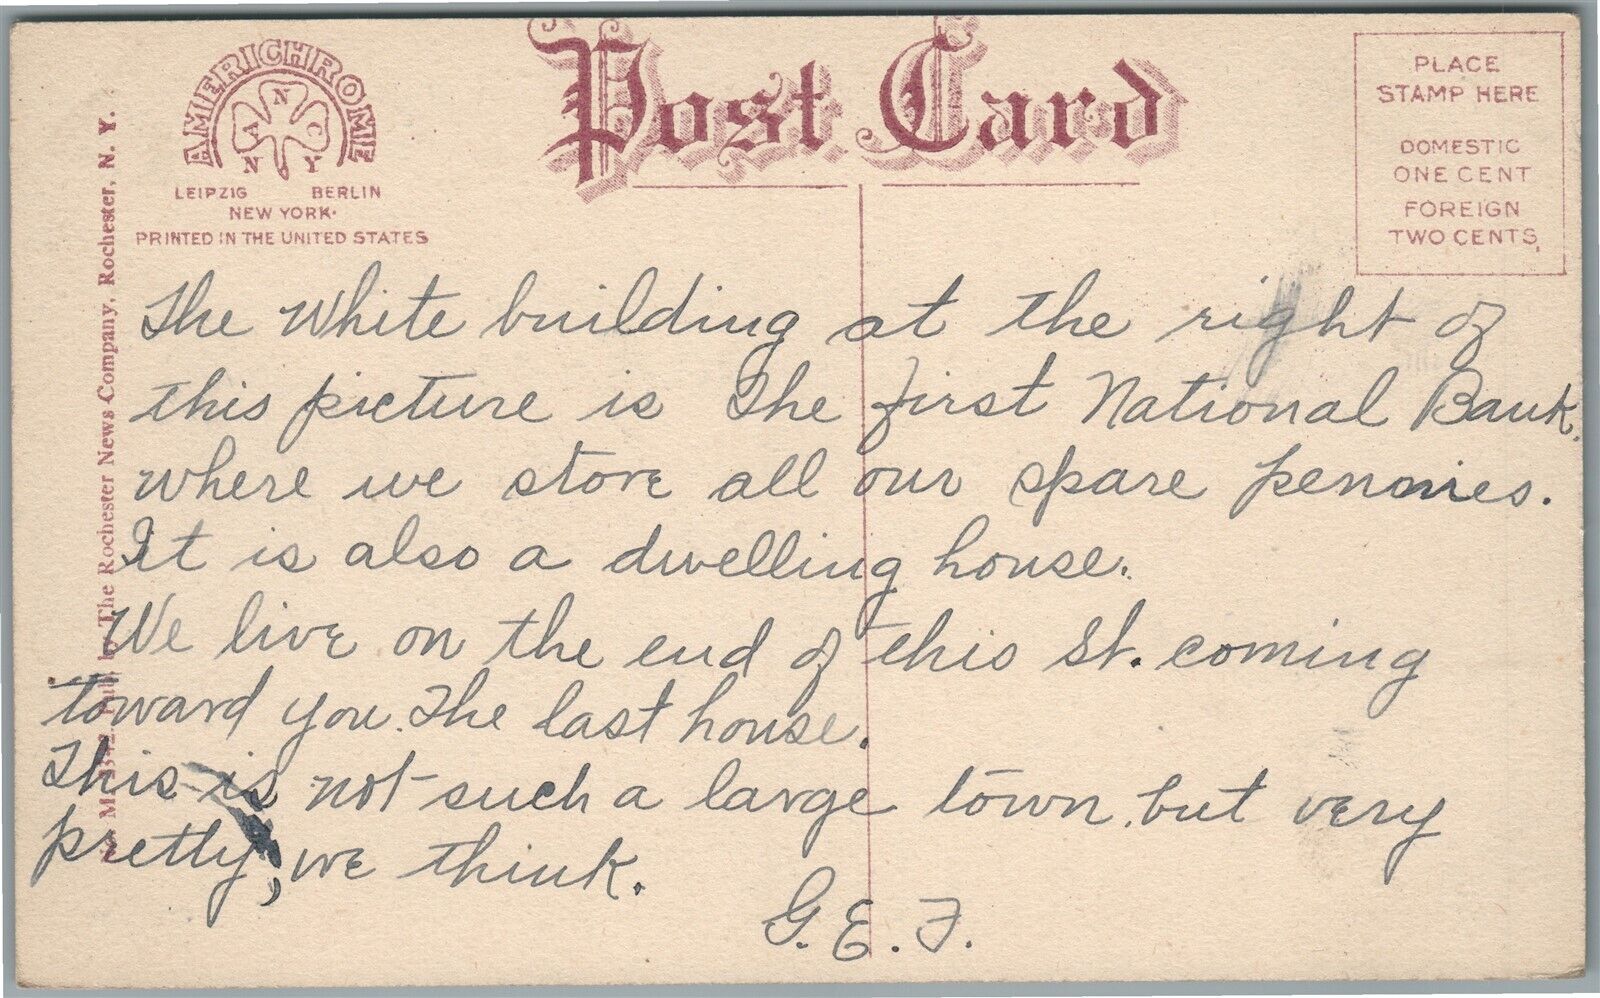 AMERICHROME
N
A C
N Y
LEIPZIG BERLIN
NEW YORK.
PRINTED IN THE UNITED STATES
Post Card
PLACE
STAMP HERE
DOMESTIC
ONE CENT
FOREIGN
TWO CENTS.
by The Rochester News Company, Rochester, N. Y.
The White building at the right of
this picture is The first National Bank.
where we store all our spare pennies.
It is also a dwelling house.
We live on the end of this St. coming
toward you. The last house.
This is not such a large town, but very
pretty, we think.
G. E. F.